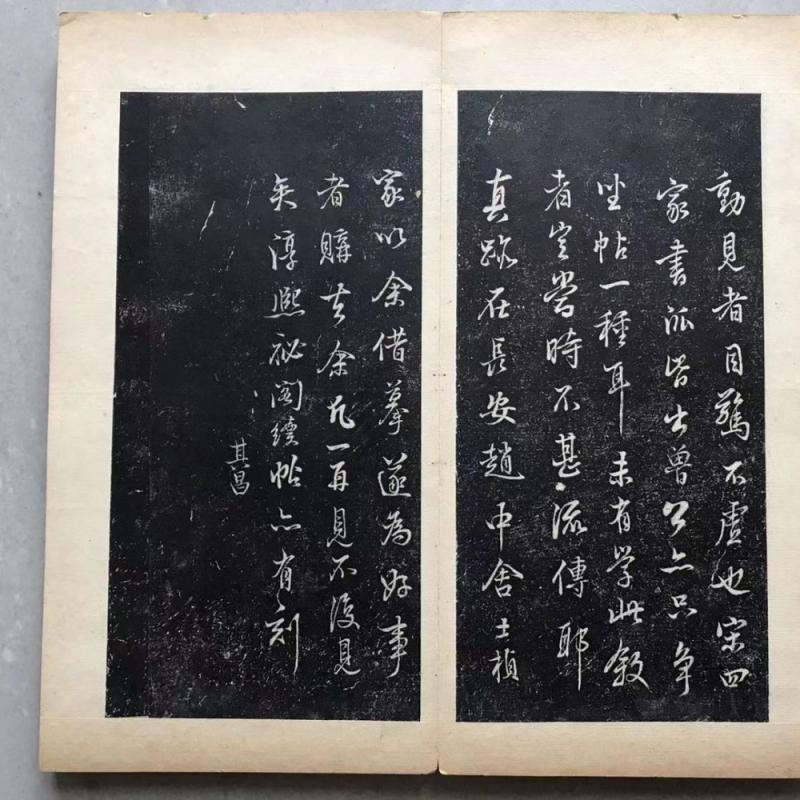 動見者目驚不虛也宋四
家書派皆出魯公亦只爭
坐帖一種耳未有學此敘
者豈當時不甚流傳耶
真跡在長安趙中舍士楨
家以余借摹遂為好事
者購去余凡一再見不復見
矣淳熙祕閣續帖亦有刻
其昌